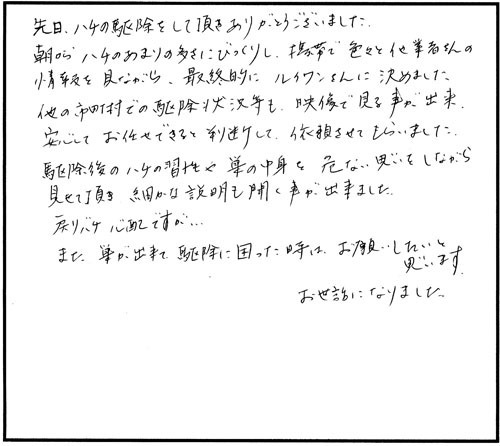 先日、ハチの駆除をして頂きありがとうございました。
朝から ハチのあまりの多さにびっくりし、携帯で色々と他業者さんの
情報を見ながら、最終的に ルイワンさんに決めました。
他の市町村での駆除状況等も、映像で見る事が出来、
安心して お任せできると判断して、依頼させてもらいました。
駆除後のハチの習性や 巣の中身を 危ない思いをしながら
見せて頂き 細かな説明も聞く事が出来ました。
戻りバチ 心配ですが…
また 巣が出来て 駆除に困った時は、お願いしたいと
思います。
お世話になりました。